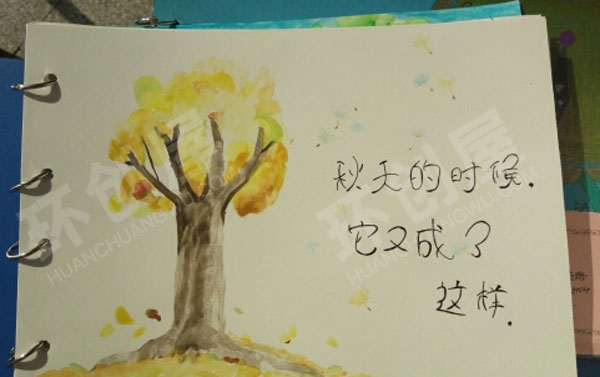 秋天的时候.
它又成了
这样.
环创屋
HUANCHUANGWU.COM
环创屋
HUANCHUANGWU.COM